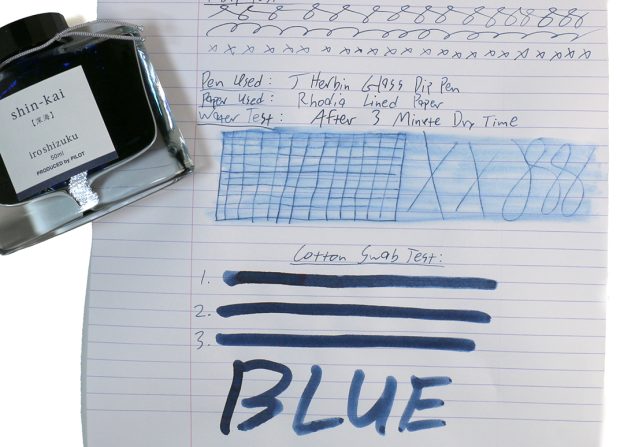 Pen Used: J Herbin Glass Dip Pen
Paper Used: Rhodia Lined Paper
Water Test: After 3 Minute Dry Time
shin-kai
【深海】
iroshizuku
50ml
PRODUCED by PILOT
X X 888
Cotton Swab Test:
1.
2.
3.
BLUE